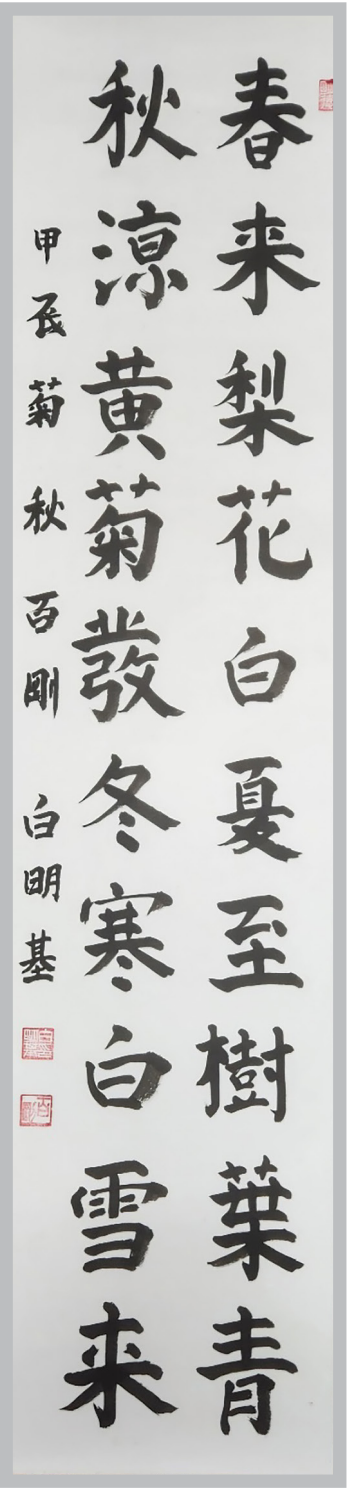 春来梨花白夏至樹葉青
秋涼黄菊發冬寒白雪来
甲辰菊秋百剛白明基